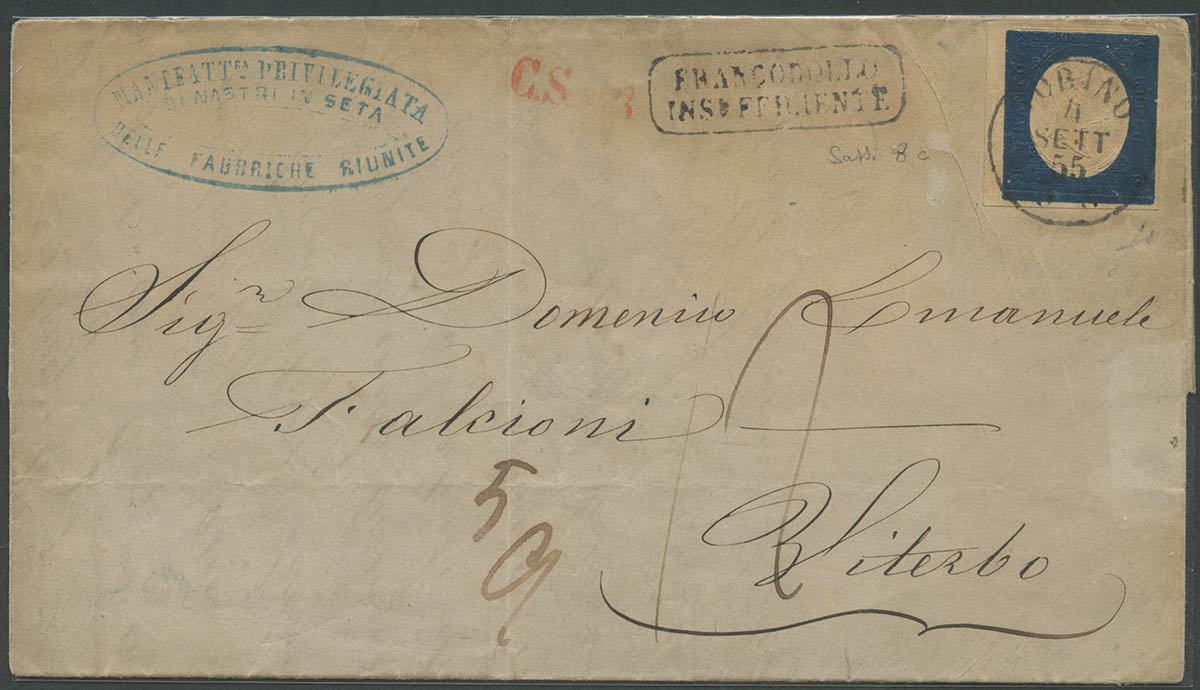 MANIFATTRA PRIVILEGIATA
DI NASTRI IN SETA
DELLE FABBRICHE RIUNITE
C.S
FRANCOBOLLO
INSUFFICIENTE
TORINO
4
SETT
55
Sass. 8 c
Sigr Domenico Emanuele
Falcioni
Viterbo
5
9